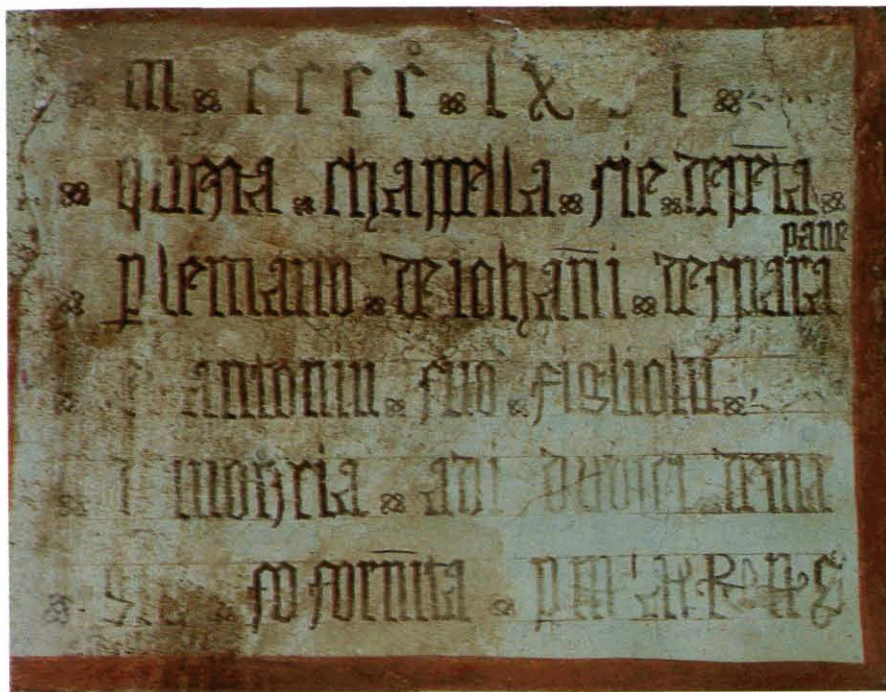 M · c c c c° · l x i ·
questa · chappella · sie · depēta ·
pane
p lemano · de iohāni · de spara
antoniu · suo · figliolu ·
norscia · adi dema
fo fornīta ·